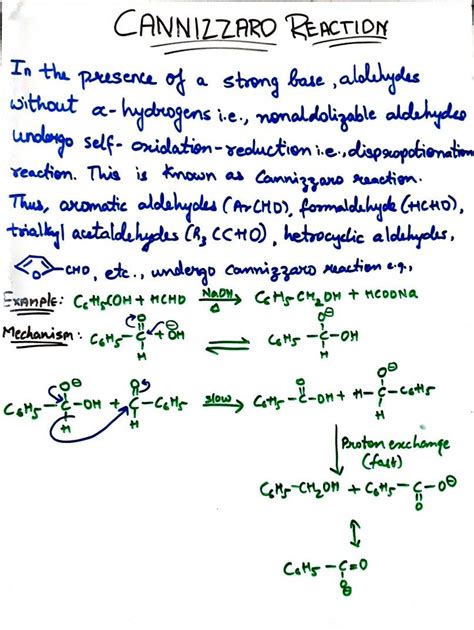 CANNIZZARO REACTION
In the presence of a strong base, aldehydes
without α-hydrogens i.e., nonaldolizable aldehydes
undergo self-oxidation-reduction i.e., dispropotionation
reaction. This is known as Cannizzaro reaction.
Thus, aromatic aldehydes (ArCHO), formaldehyde (HCHO),
trialkyl acetaldehydes (R₃CCHO), hetrocyclic aldehydes,
O -CHO, etc., undergo cannizzaro reaction e.g.,
EXAMPLE: C₆H₅COH + HCHO NaOH, Δ → C₆H₅-CH₂OH + HCOONa
Mechanism: C₆H₅-C(=O)-H + ⊖OH ⇌ C₆H₅-C(O⊖)(H)-OH
C₆H₅-C(O⊖)(H)-OH + C(=O)(H)-C₆H₅ slow → C₆H₅-C(=O)-OH + H-C(O⊖)(H)-C₆H₅
Proton exchange
(fast)
C₆H₅-CH₂OH + C₆H₅-C(=O)-O⊖
↕
C₆H₅-C(O⊖)=O